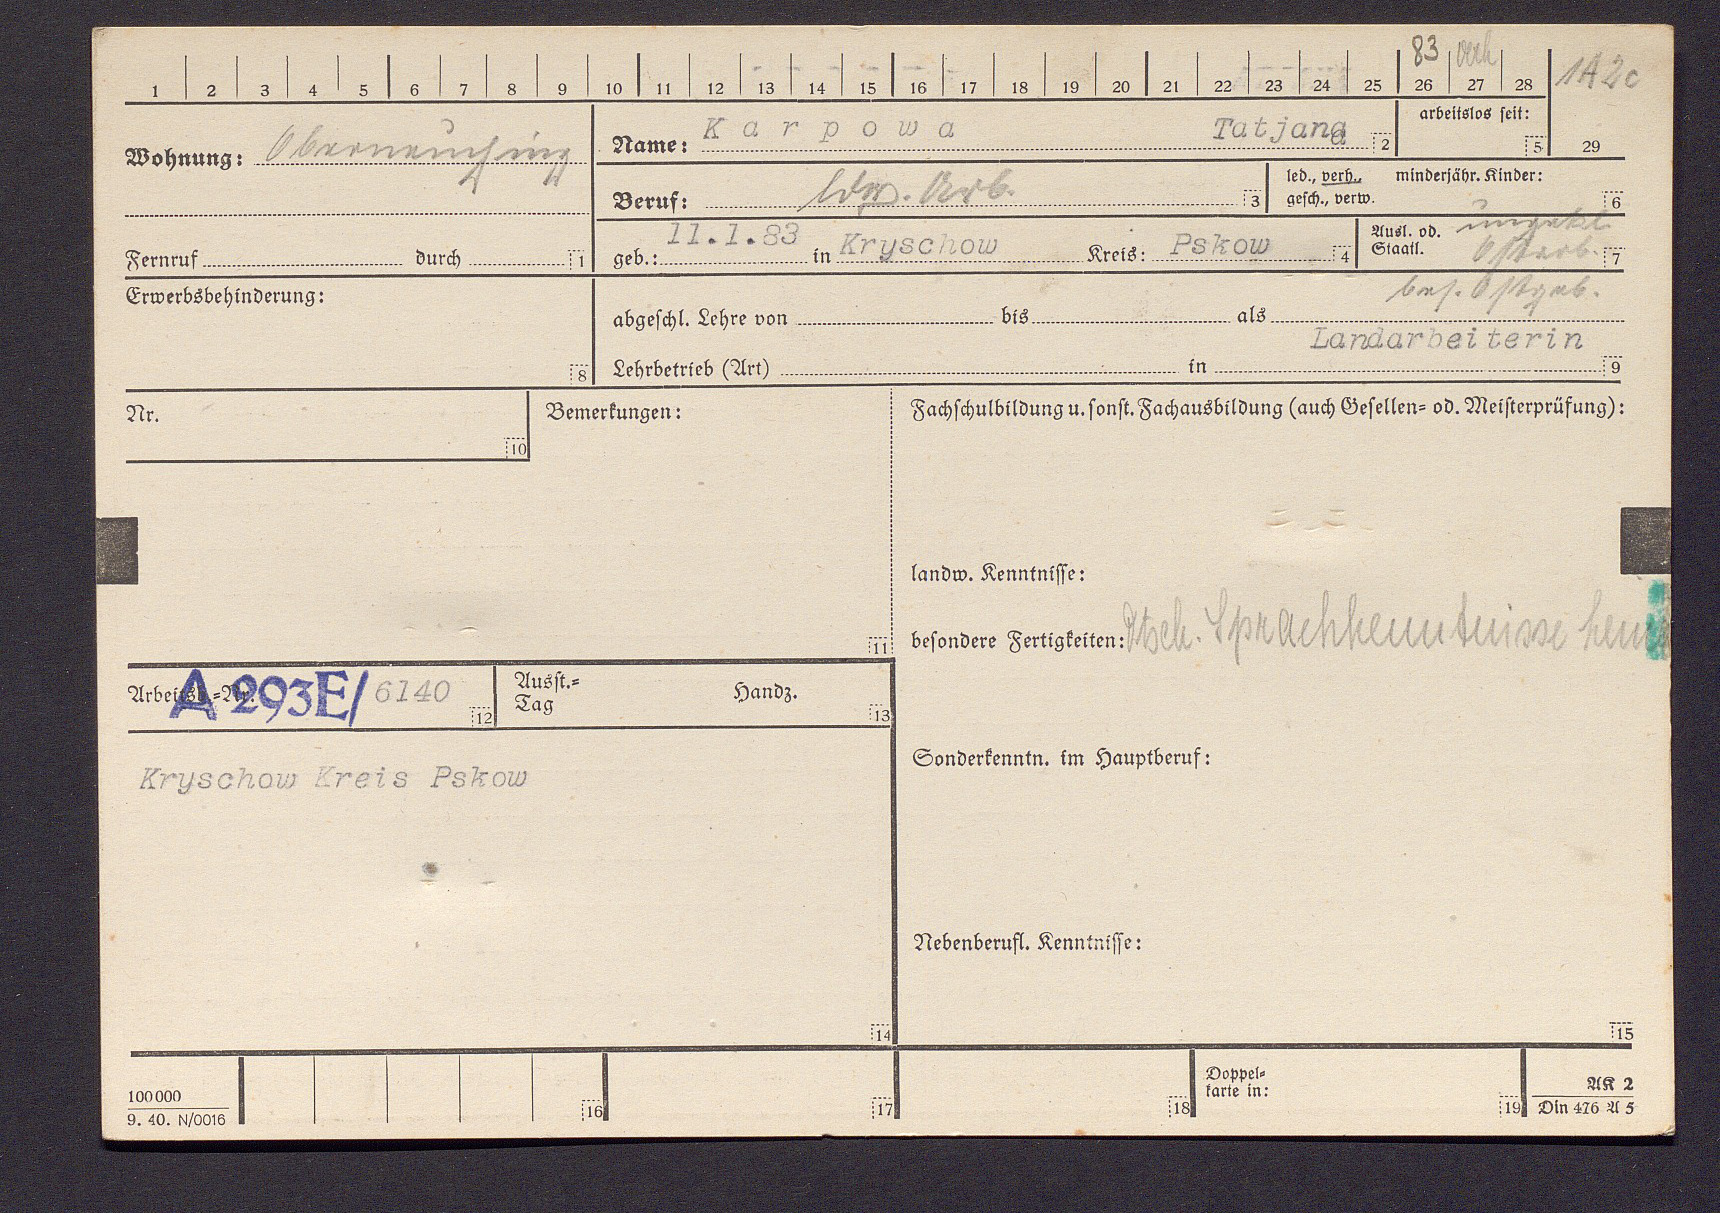 83 verh
1A2c
1 2 3 4 5 6 7 8 9 10 11 12 13 14 15 16 17 18 19 20 21 22 23 24 25 26 27 28
29
Wohnung: Oberneuching
Name: Karpowa Tatjana 2
arbeitslos seit: 5
Beruf: ldw. Arb. 3
led., verh., minderjähr. Kinder:
gesch., verw. 6
Fernruf durch 1
geb.: 11.1.83 in Kryschow Kreis: Pskow 4
Ausl. od. ungekl.
Staatl. Ostarb. 7
bes. Ostgeb.
Erwerbsbehinderung:
8
abgeschl. Lehre von bis als
Landarbeiterin
Lehrbetrieb (Art) in 9
Nr.
10
Bemerkungen:
11
Fachschulbildung u. sonst. Fachausbildung (auch Gesellen- od. Meisterprüfung):
landw. Kenntnisse:
besondere Fertigkeiten: Dtsch. Sprachkenntnisse
Arbeitsb.-Nr. A 293E/ 6140 12
Ausst.-
Tag
Handz.
13
Kryschow Kreis Pskow
14
Sonderkenntn. im Hauptberuf:
Nebenberufl. Kenntnisse:
15
100000
9. 40. N/0016
16
17
18
Doppel-
karte in:
19
AK 2
Din 476 A 5